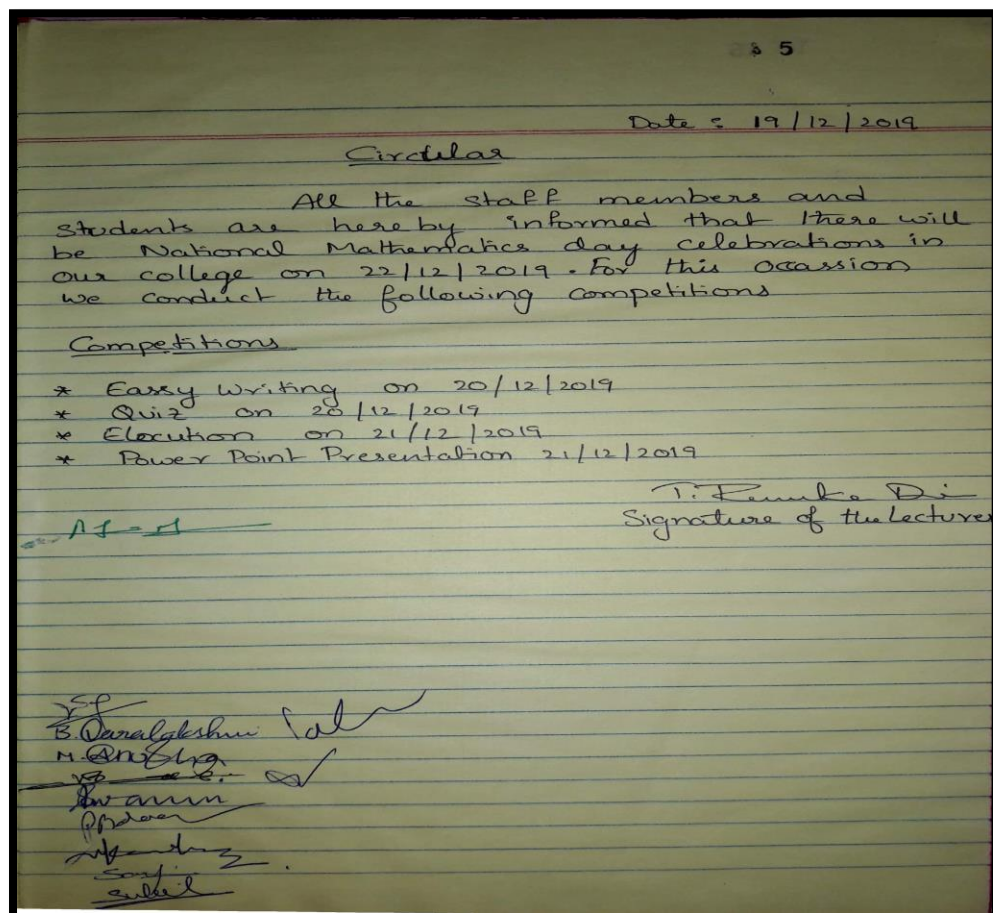 5
Date : 19/12/2019
Circular
All the staff members and
students are here by informed that there will
be National Mathematics day celebrations in
our college on 22/12/2019. For this occassion
we conduct the following competitions
Competitions
* Eassy Writing on 20/12/2019
* Quiz on 20/12/2019
* Elocution on 21/12/2019
* Power Point Presentation 21/12/2019
T. Renuka
Signature of the Lecturer
M. Anusha